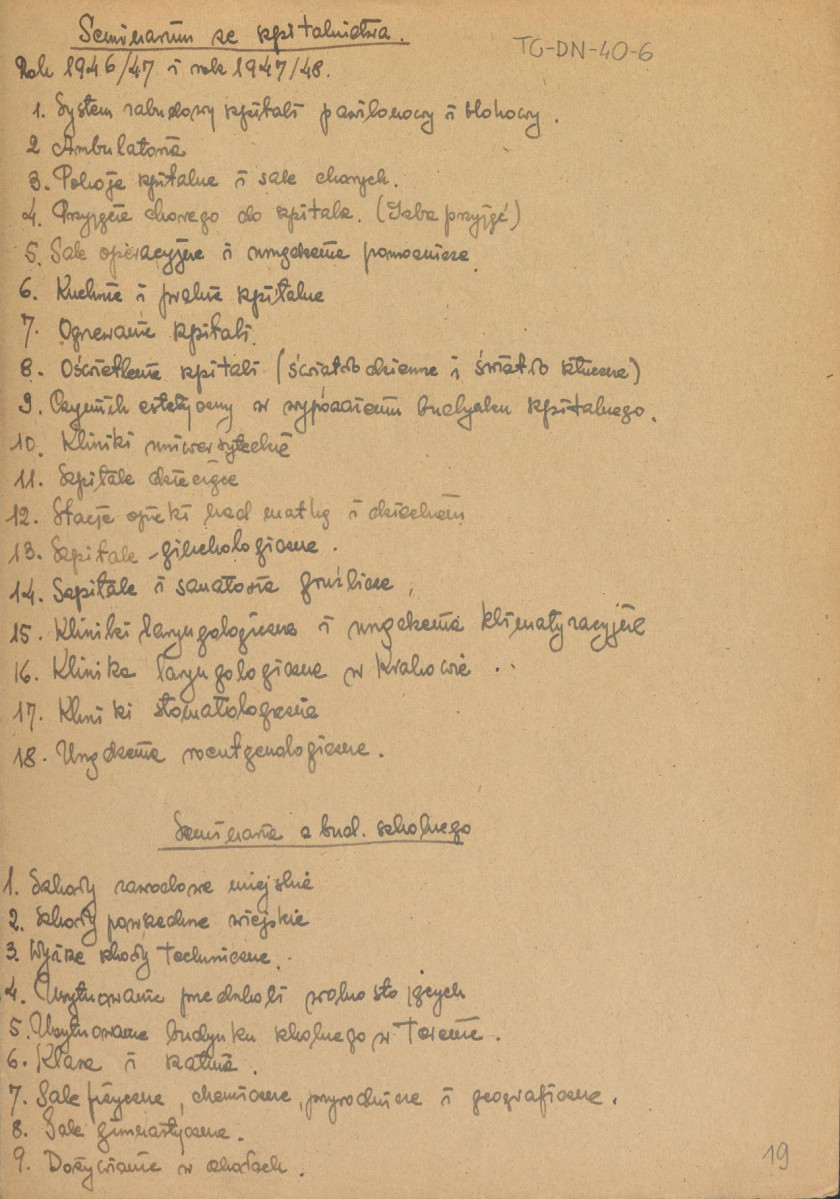 Seminarium ze szpitalnictwa.
TG-DN-40-6
Rok 1946/47 i rok 1947/48.
1. System zabudowy szpitali pawilonowy i blokowy.
2 Ambulatoria
3. Pokoje szpitalne i sale chorych.
4. Przyjęcie chorego do szpitala. (Izba przyjęć)
5. Sale operacyjne i urządzenia pomocnicze
6. Kuchnie i pralnie szpitalne
7. Ogrzewanie szpitali.
8. Oświetlenie szpitali (światło dzienne i światło sztuczne)
9. Czynnik estetyczny w wyposażeniu budynku szpitalnego.
10. Kliniki uniwersyteckie
11. Szpitale dziecięce
12. Stacje opieki nad matką i dzieckiem
13. Szpitale - ginekologiczne.
14. Szpitale i sanatoria gruźlicze,
15. Kliniki laryngologiczne i urządzenia klimatyzacyjne
16. Klinika laryngologiczna w Krakowie ..
17. Kliniki stomatologiczne
18. Urządzenia roentgenologiczne.
Seminaria z bud. szkolnego
1. Szkoły zawodowe miejskie
2. Szkoły powszechne wiejskie
3. Wyższe szkoły techniczne.
4. Usytuowanie przedszkoli wolnostojących
5. Usytuowanie budynku szkolnego w terenie.
6. Klasa i szatnia.
7. Sale fizyczne, chemiczne, przyrodnicze i geograficzne.
8. Sale gimnastyczne.
9. Dożywianie w szkołach.
19